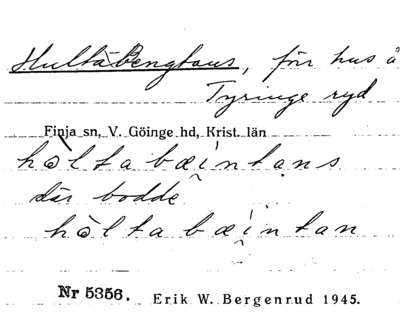 Hultabengtaus, för hus å
Tyringe ryd
Finja sn, V. Göinge hd, Krist. län
hòlta bæintans
där bodde
hòlta bæintan
Nr 5356. Erik W. Bergenrud 1945.